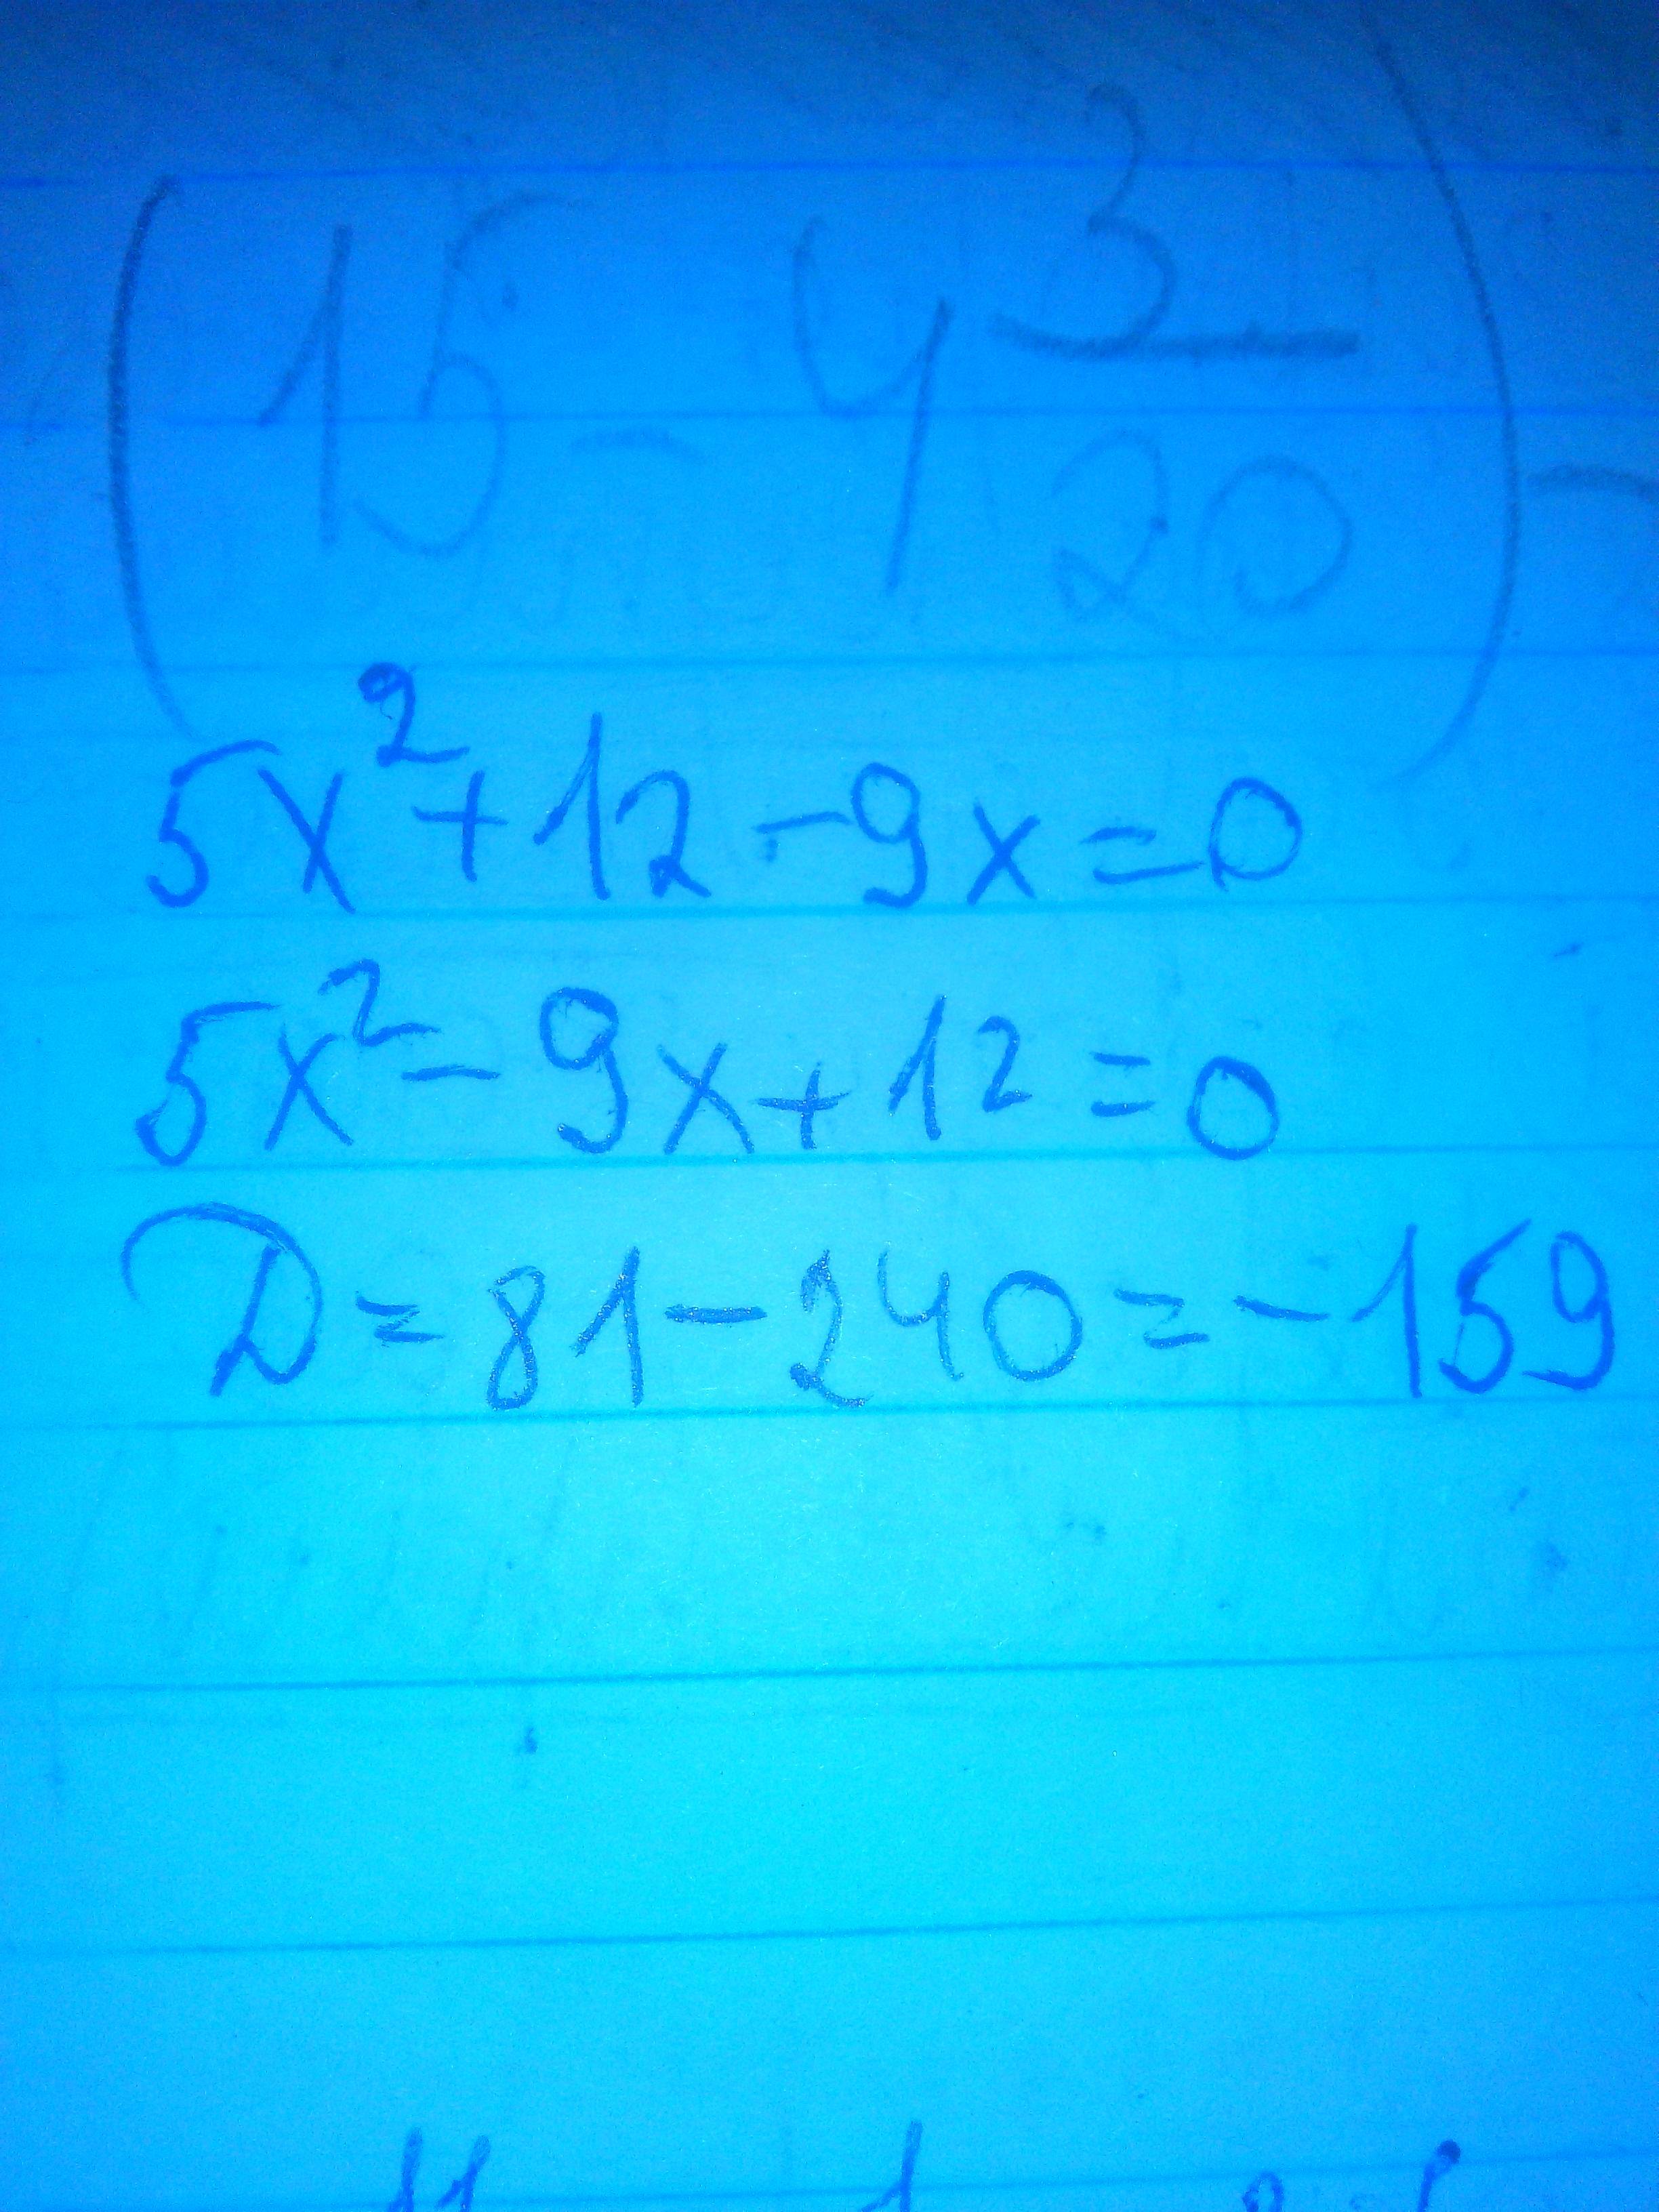 (15 - 4 3/20) -
5x² + 12 - 9x = 0
5x² - 9x + 12 = 0
D = 81 - 240 = -159